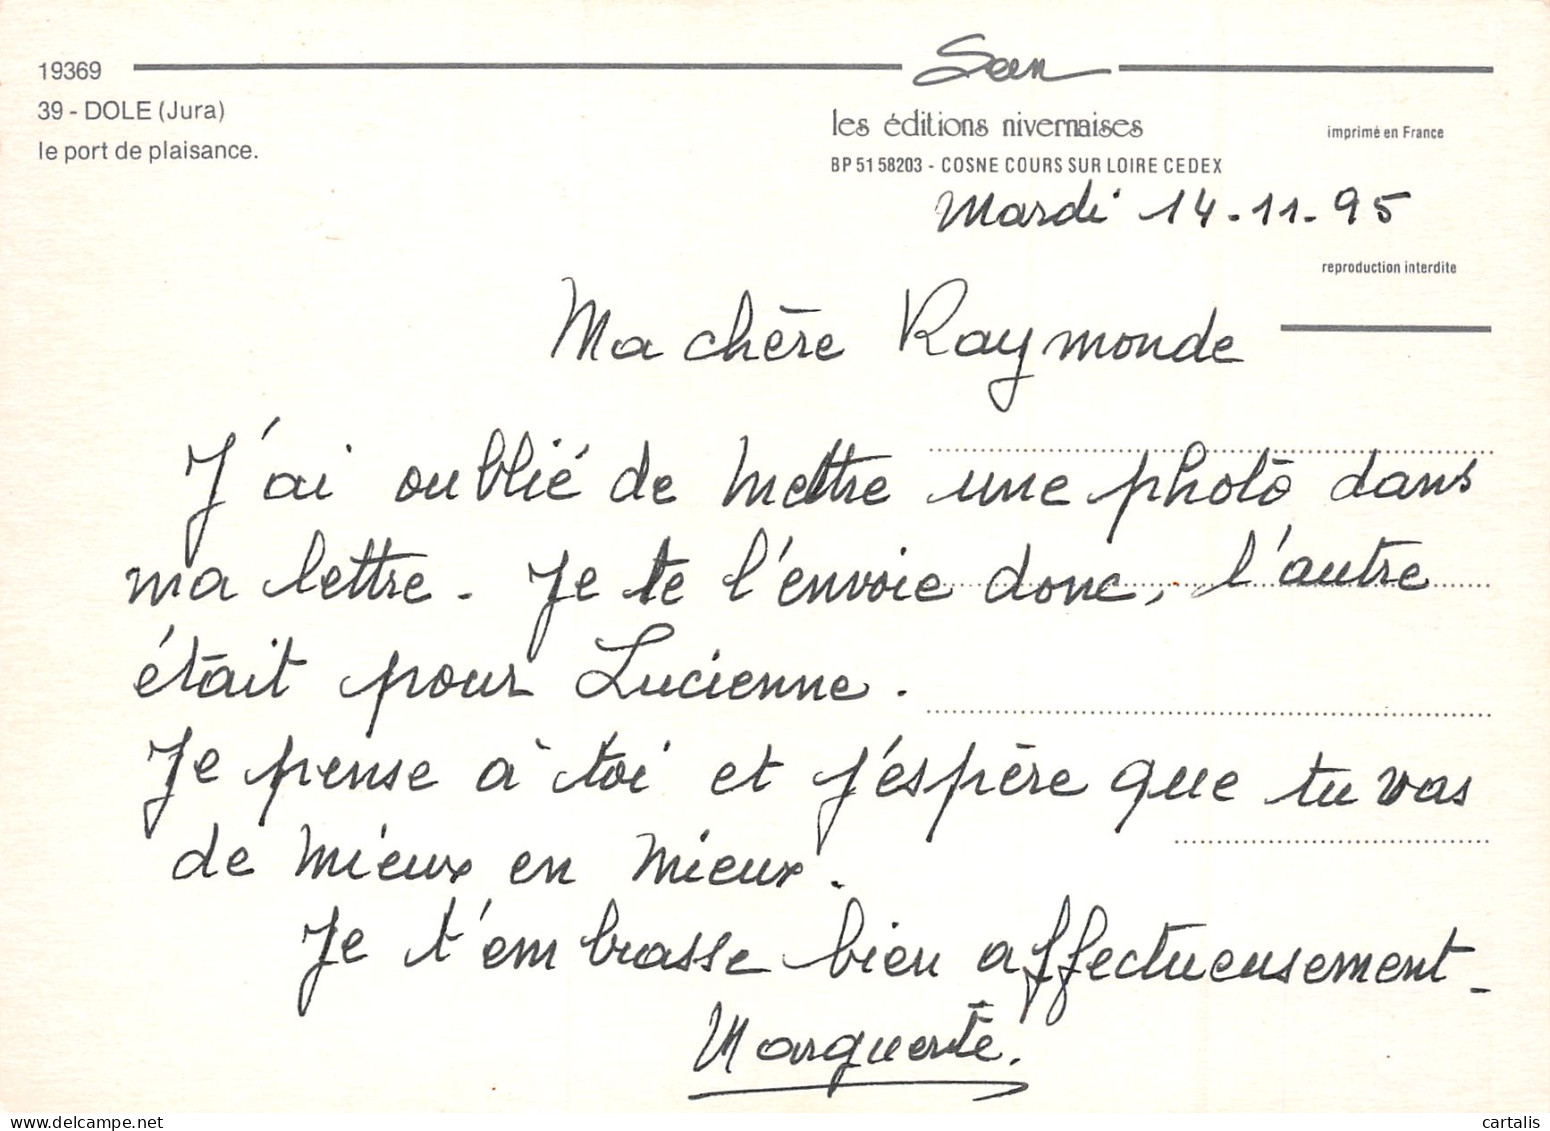 19369
39 - DOLE (Jura)
le port de plaisance.
les éditions nivernaises
BP 51 58203 - COSNE COURS SUR LOIRE CEDEX
imprimé en France
Mardi 14-11-95
reproduction interdite
Ma chère Raymonde
J'ai oublié de mettre une photo dans
ma lettre. Je te l'envoie donc, l'autre
était pour Lucienne.
Je pense à toi et j'espère que tu vas
de mieux en mieux.
Je t'embrasse bien affectueusement.
Marguerite.
delcampe.net
cartalis